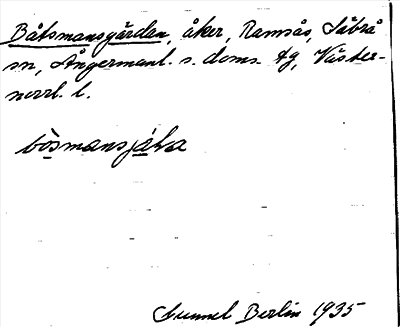 Båtsmansgärdan, åker, Ramsås, Säbrå
sn, Ångermanl. s. doms. tg, Väster-
norrl. l.
Gunnel Berlin 1935